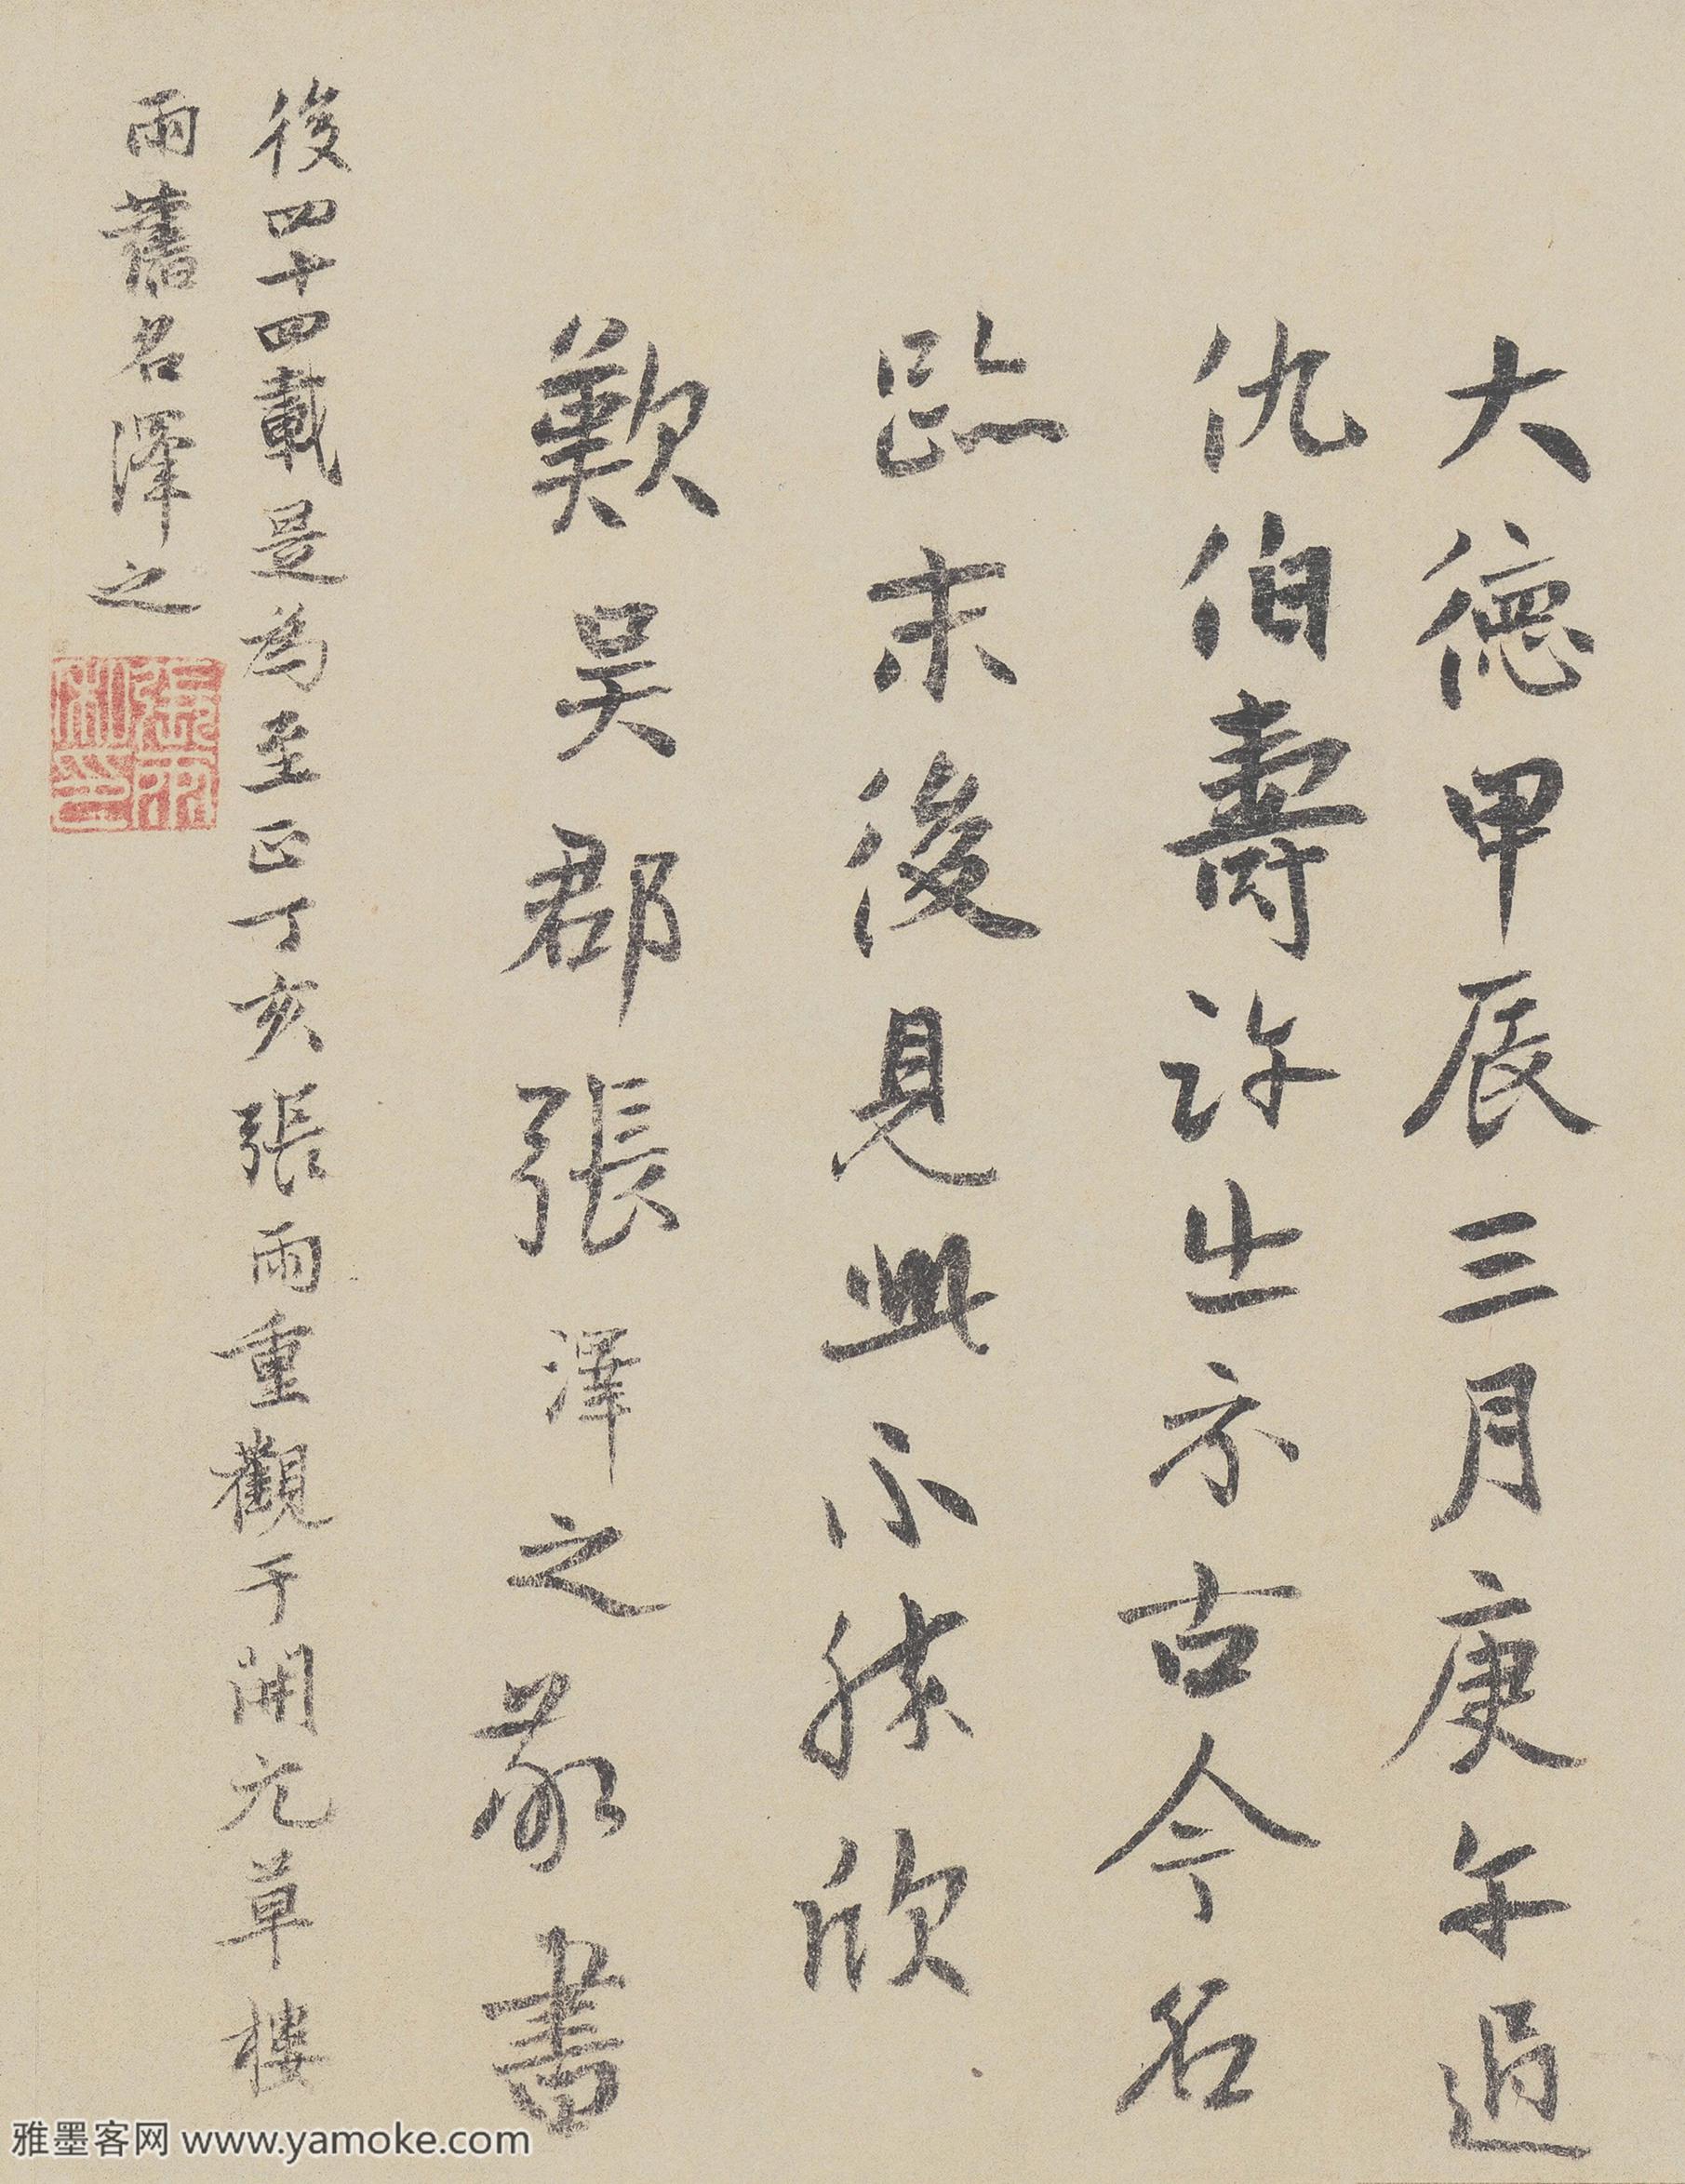 大德甲辰三月庚午過
仇伯壽許出示古今名
臨末後見此不勝欣
歎吳郡張澤之敬書
後四十四載是為至正丁亥張雨重觀于開元草樓
雨舊名澤之
張雨私印
雅墨客网 www.yamoke.com